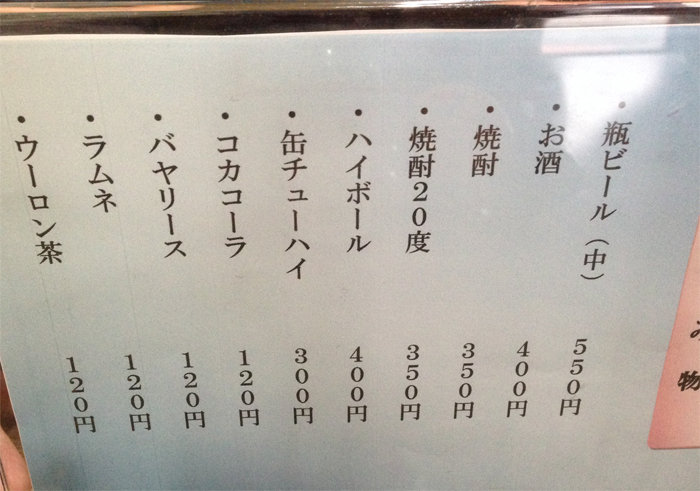 み物
・瓶ビール（中） ５５０円
・お酒 ４００円
・焼酎 ３５０円
・焼酎２０度 ３５０円
・ハイボール ４００円
・缶チューハイ ３００円
・コカコーラ １２０円
・バヤリース １２０円
・ラムネ １２０円
・ウーロン茶 １２０円